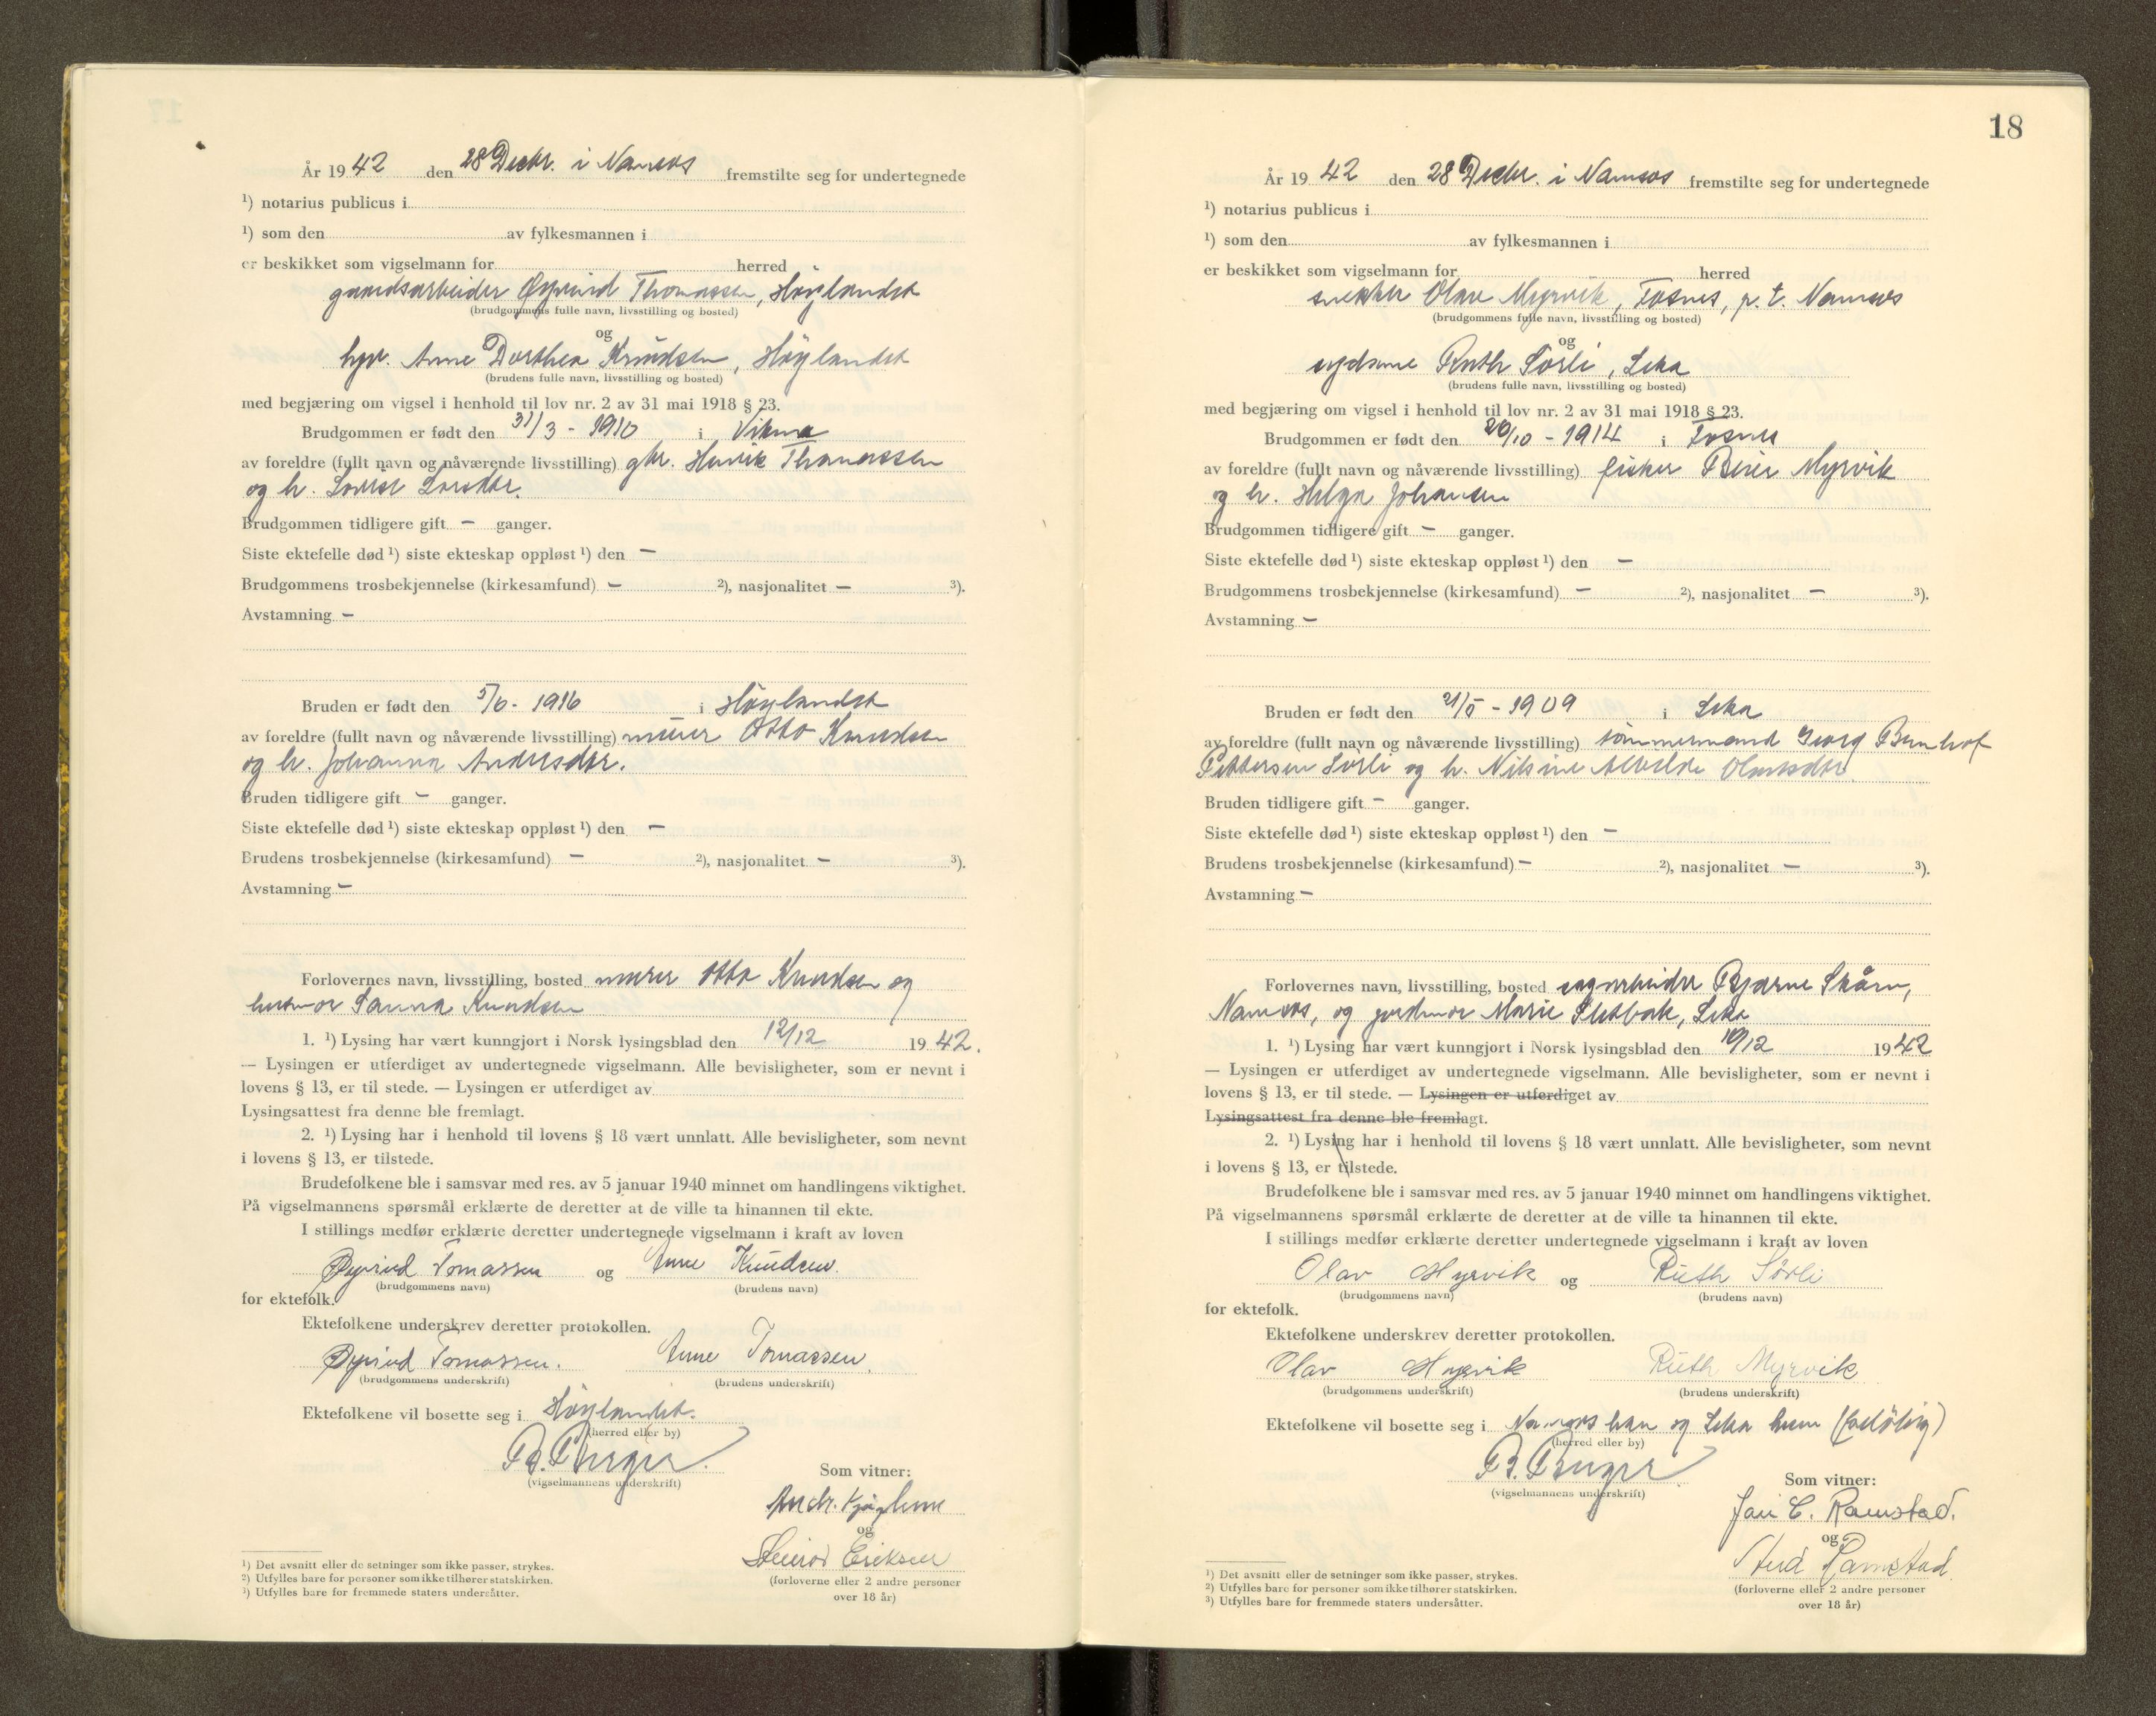 År 1942 den 28 Decbr. i Namsos fremstilte seg for undertegnede
¹) notarius publicus i
¹) som den av fylkesmannen i
er beskikket som vigselmann for herred
gaardsarbeider Øyvind Thomassen, Høylandet
(brudgommens fulle navn, livsstilling og bosted)
og
hpr. Anne Dorthea Knudsen, Høylandet
(brudens fulle navn, livsstilling og bosted)
med begjæring om vigsel i henhold til lov nr. 2 av 31 mai 1918 § 23.
Brudgommen er født den 31/3 - 1910 i Vikna
av foreldre (fullt navn og nåværende livsstilling) gbr. Henrik Thomassen
og h. Lovise
Brudgommen tidligere gift - ganger.
Siste ektefelle død ¹) siste ekteskap oppløst ¹) den -
Brudgommens trosbekjennelse (kirkesamfund) - ²), nasjonalitet - ³).
Avstamning -
Bruden er født den 5/6 - 1916 i Høylandet
av foreldre (fullt navn og nåværende livsstilling) murer Otto Knudsen
og h. Johanna Andersdtr.
Bruden tidligere gift - ganger.
Siste ektefelle død ¹) siste ekteskap oppløst ¹) den -
Brudens trosbekjennelse (kirkesamfund) - ²), nasjonalitet - ³).
Avstamning -
Forlovernes navn, livsstilling, bosted murer Otto Knudsen og
hustmor Sanna Knudsen
1. ¹) Lysing har vært kunngjort i Norsk lysingsblad den 12/12 1942.
— Lysingen er utferdiget av undertegnede vigselmann. Alle bevisligheter, som er nevnt i
lovens § 13, er til stede. — Lysingen er utferdiget av
Lysingsattest fra denne ble fremlagt.
2. ¹) Lysing har i henhold til lovens § 18 vært unnlatt. Alle bevisligheter, som nevnt
i lovens § 13, er tilstede.
Brudefolkene ble i samsvar med res. av 5 januar 1940 minnet om handlingens viktighet.
På vigselmannens spørsmål erklærte de deretter at de ville ta hinannen til ekte.
I stillings medfør erklærte deretter undertegnede vigselmann i kraft av loven
Øyvind Tomassen og Anne Knudsen.
(brudgommens navn) (brudens navn)
for ektefolk.
Ektefolkene underskrev deretter protokollen.
Øyvind Tomassen. Anne Tomassen.
(brudgommens underskrift) (brudens underskrift)
Ektefolkene vil bosette seg i Høylandet.
(herred eller by)
B. Burger.
(vigselmannens underskrift)
Som vitner:
og
Steinar Eriksen
(forloverne eller 2 andre personer
over 18 år)
¹) Det avsnitt eller de setninger som ikke passer, strykes.
²) Utfylles bare for personer som ikke tilhører statskirken.
³) Utfylles bare for fremmede staters undersåtter.
18
År 1942 den 28 Decbr. i Namsos fremstilte seg for undertegnede
¹) notarius publicus i
¹) som den av fylkesmannen i
er beskikket som vigselmann for herred
snekker Olav Myrvik, Fosnes, p. t. Namsos
(brudgommens fulle navn, livsstilling og bosted)
og
sydame Ruth Sørli, Leka
(brudens fulle navn, livsstilling og bosted)
med begjæring om vigsel i henhold til lov nr. 2 av 31 mai 1918 § 23.
Brudgommen er født den 20/10 - 1914 i Fosnes
av foreldre (fullt navn og nåværende livsstilling) fisker Peder Myrvik
og h. Helga Johansen
Brudgommen tidligere gift - ganger.
Siste ektefelle død ¹) siste ekteskap oppløst ¹) den -
Brudgommens trosbekjennelse (kirkesamfund) - ²), nasjonalitet - ³).
Avstamning -
Bruden er født den 21/5 - 1909 i Leka
av foreldre (fullt navn og nåværende livsstilling) tømmermand Georg Bernhof
Pettersen Sørli og h. Nilsine Olausdtr.
Bruden tidligere gift - ganger.
Siste ektefelle død ¹) siste ekteskap oppløst ¹) den -
Brudens trosbekjennelse (kirkesamfund) - ²), nasjonalitet - ³).
Avstamning -
Forlovernes navn, livsstilling, bosted sagarbeider Bjarne Skåru,
Namsos, og jordmor Marie Sletbak, Leka
1. ¹) Lysing har vært kunngjort i Norsk lysingsblad den 10/12 1942
— Lysingen er utferdiget av undertegnede vigselmann. Alle bevisligheter, som er nevnt i
lovens § 13, er til stede. — Lysingen er utferdiget av
Lysingsattest fra denne ble fremlagt.
2. ¹) Lysing har i henhold til lovens § 18 vært unnlatt. Alle bevisligheter, som nevnt
i lovens § 13, er tilstede.
Brudefolkene ble i samsvar med res. av 5 januar 1940 minnet om handlingens viktighet.
På vigselmannens spørsmål erklærte de deretter at de ville ta hinannen til ekte.
I stillings medfør erklærte deretter undertegnede vigselmann i kraft av loven
Olav Myrvik og Ruth Sørli
(brudgommens navn) (brudens navn)
for ektefolk.
Ektefolkene underskrev deretter protokollen.
Olav Myrvik Ruth Myrvik
(brudgommens underskrift) (brudens underskrift)
Ektefolkene vil bosette seg i Namsos han og Leka hun (foreløbig)
(herred eller by)
B. Burger
(vigselmannens underskrift)
Som vitner:
Jan C. Ramstad.
og
Aud Ramstad.
(forloverne eller 2 andre personer
over 18 år)
¹) Det avsnitt eller de setninger som ikke passer, strykes.
²) Utfylles bare for personer som ikke tilhører statskirken.
³) Utfylles bare for fremmede staters undersåtter.